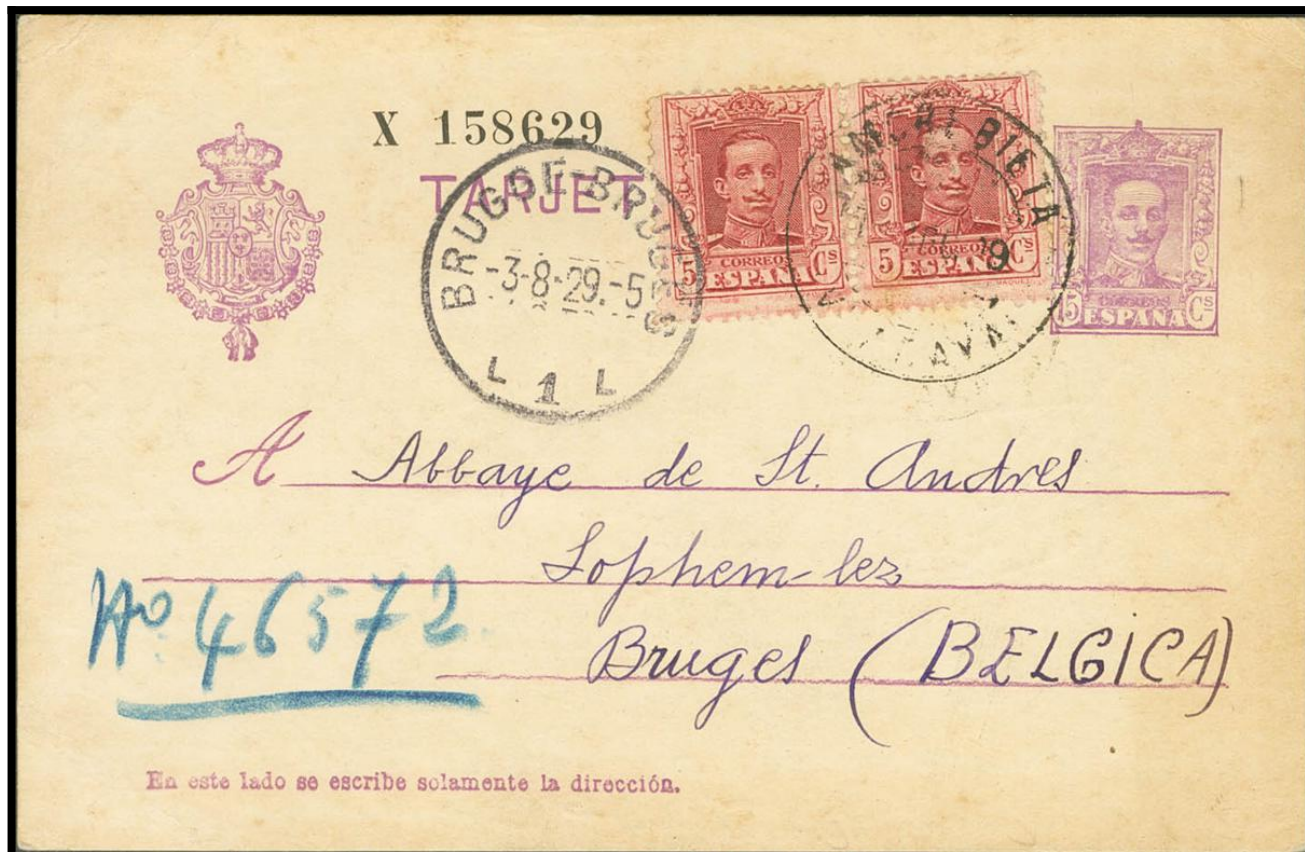 X 158629
TARJET
BRUGGE-BRUGES
-3-8-29.-5
L 1 L
5 CORREOS Cs
ESPAÑA
5 CORREOS Cs
ESPAÑA
BIETA
9
15 Cs
ESPAÑA
A Abbaye de St. Andres
Lophem-lez
Bruges (BELGICA)
No. 46572
En este lado se escribe solamente la dirección.